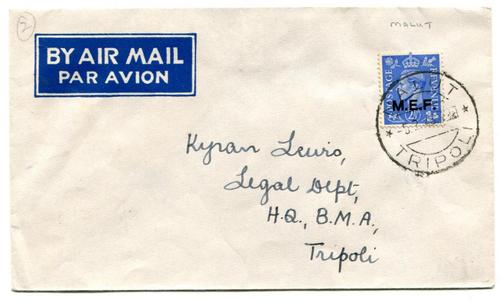 MALUT
BY AIR MAIL
PAR AVION
POSTAGE
REVENUE
M.E.F.
TRIPOLI
Kynan Lewis,
Legal Dept,
H.Q., B.M.A,
Tripoli